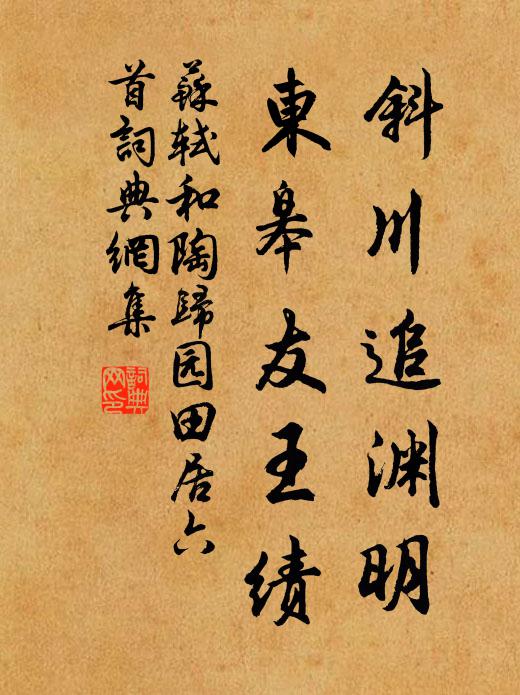 斜川追渊明
東皋友王绩
蘇軾和陶歸园田居六
首詞典網集
詞典
网印